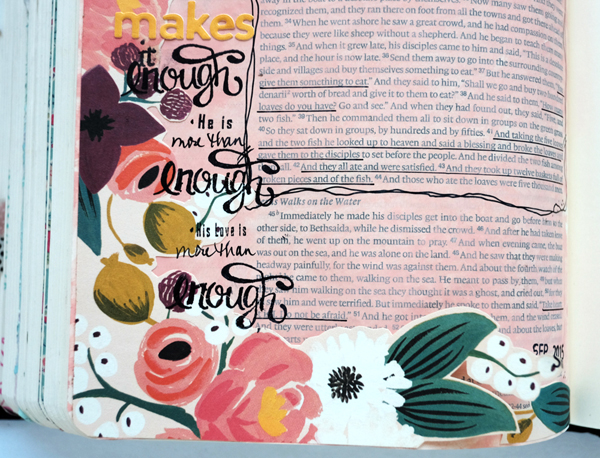 makes
it
enough
• He is
more than
enough
• His love is
more than
enough
recognized, and they ran there on foot from all the towns and got there
them. 34 When he went ashore he saw a great crowd, and he had compassion
because they were like sheep without a shepherd. And he began to teach them
things. 35 And when it grew late, his disciples came to him and said, "This is a
place, and the hour is now late. 36 Send them away to go into the surrounding
side and villages and buy themselves something to eat." 37 But he answered
give them something to eat." And they said to him, "Shall we go and buy two
denarii worth of bread and give it to them to eat?" 38 And he said to them,
loaves do you have? Go and see." And when they had found out, they said,
two fish." 39 Then he commanded them all to sit down in groups on the green
40 So they sat down in groups, by hundreds and by fifties. 41 And taking the five
and the two fish he looked up to heaven and said a blessing and broke the loaves
gave them to the disciples to set before the people. And he divided the two fish
all. 42 And they all ate and were satisfied. 43 And they took up twelve baskets
broken pieces and of the fish. 44 And those who ate the loaves were five thousand
Walks on the Water
45 Immediately he made his disciples get into the boat and go before him
other side, to Bethsaida, while he dismissed the crowd. 46 And after he had taken
of them, he went up on the mountain to pray. 47 And when evening came, the
was out on the sea, and he was alone on the land. 48 And he saw that they were making
headway painfully, for the wind was against them. And about the fourth watch of the
he came to them, walking on the sea. He meant to pass by them, 49 but
they saw him walking on the sea they thought it was a ghost, and cried out, 50 for they
saw him and were terrified. But immediately he spoke to them and said,
do not be afraid." 51 And he got into the boat with them, and the wind
And they were utterly
about the loaves, but
SEP 2015